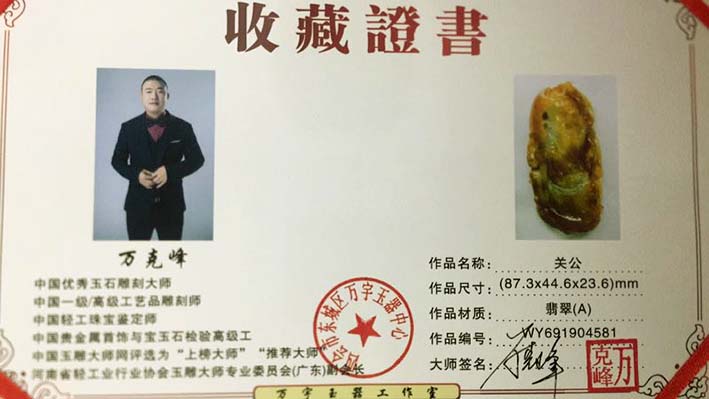 收藏證書
万克峰
中国优秀玉石雕刻大师
中国一级/高级工艺品雕刻师
中国轻工珠宝鉴定师
中国贵金属首饰与宝玉石检验高级工
中国玉雕大师网评选为“上榜大师”“推荐大师”
河南省轻工业行业协会玉雕大师专业委员会(广东)副会长
会市东城区万宇玉器中心
作品名称: 关公
作品尺寸: (87.3x44.6x23.6)mm
作品材质: 翡翠(A)
作品编号: WY691904581
大师签名: 万克峰
万克峰
万宇玉器工作室